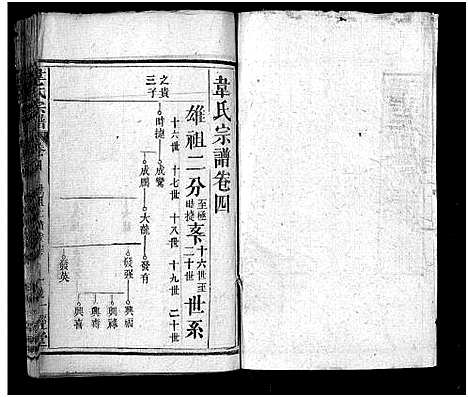 韋氏宗譜卷四
雄祖二分至極時捷支十六世至二十世世系
十六世 十七世 十八世 十九世 二十世
之貴三子
時捷
成鸞
成鳳
大龍
發有
發强
發英
興祿
興壽
興喜
韋氏宗譜
一經堂